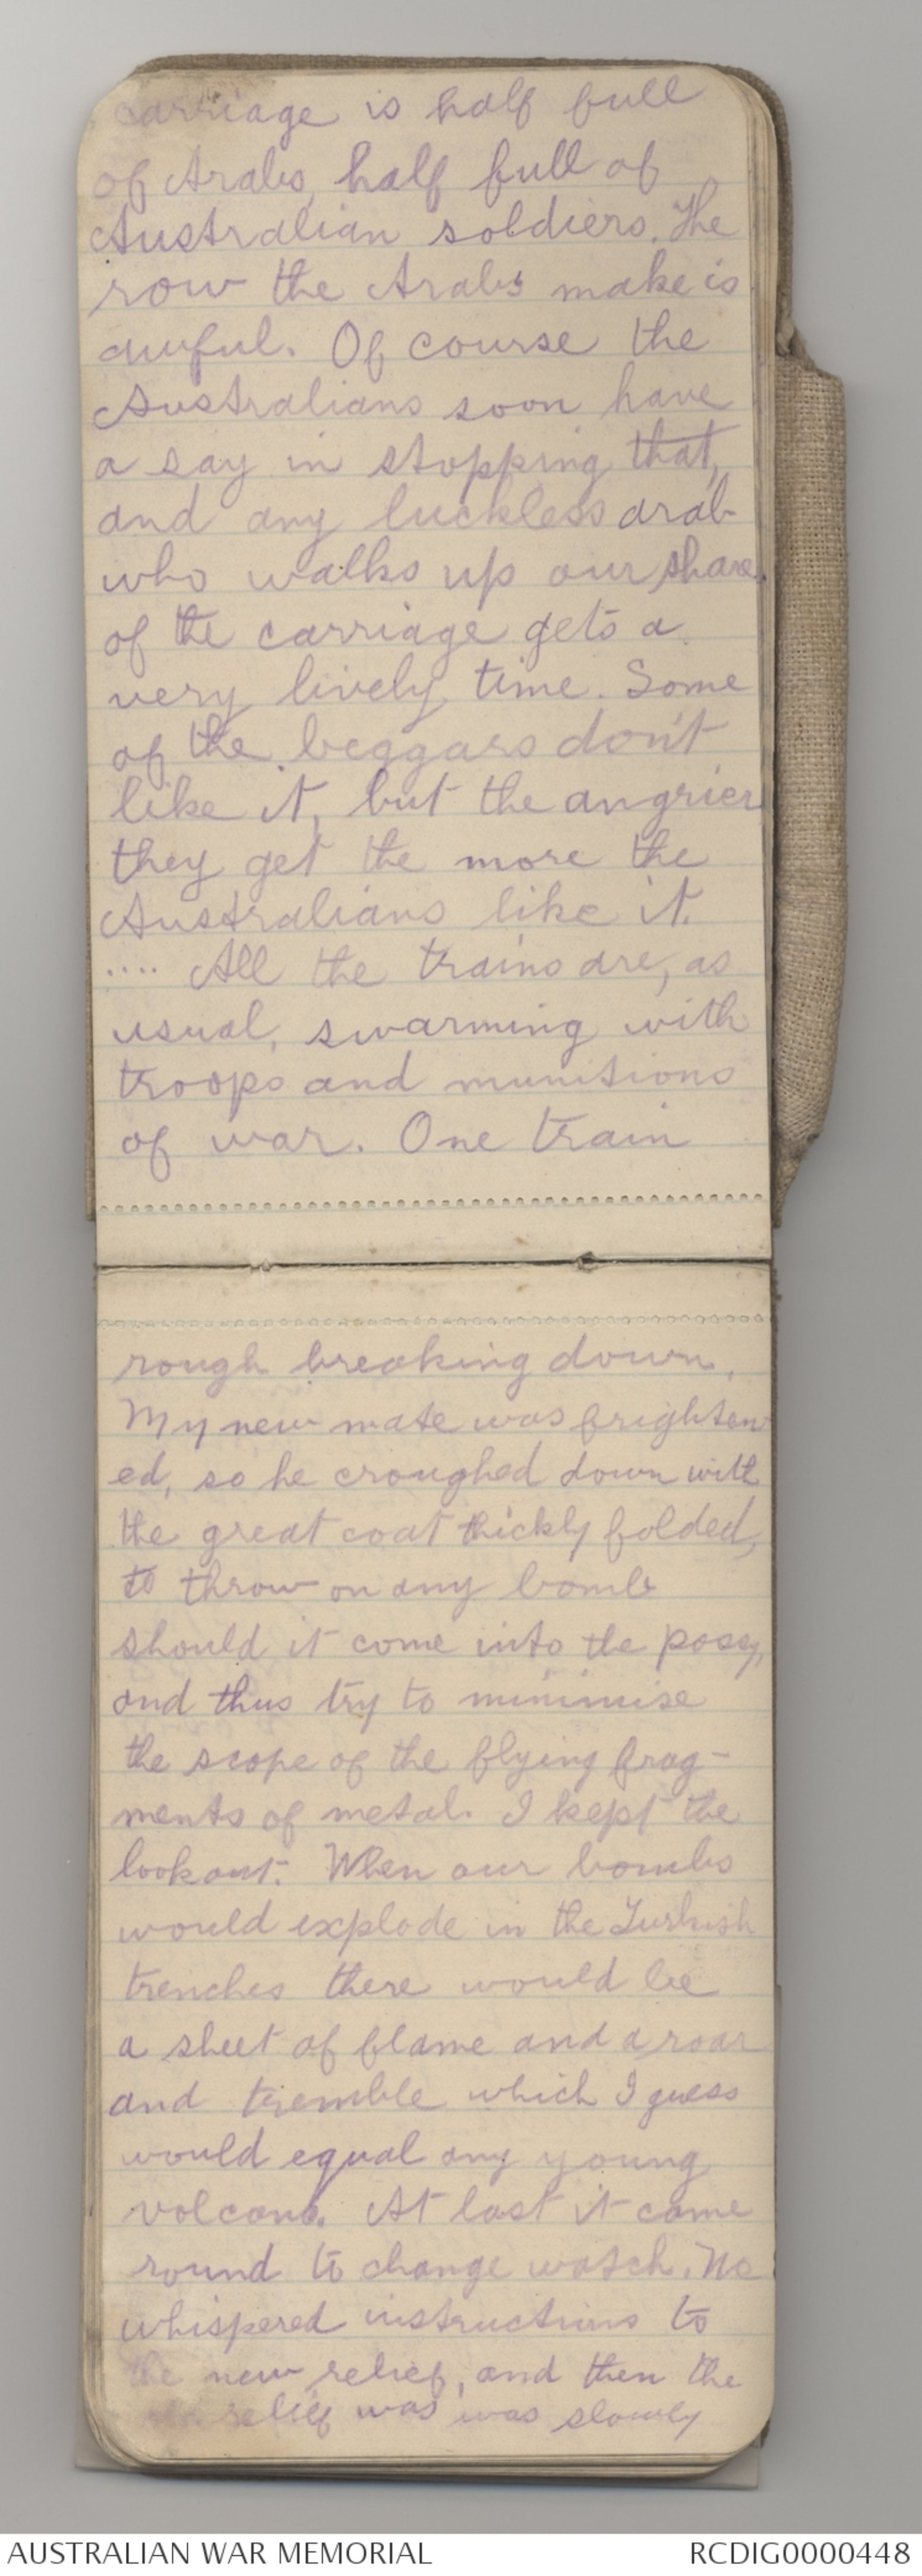 carriage is half full
of Arabs, half full of
Australian soldiers. The
row the Arabs make is
awful. Of course the
Australians soon have
a say in stopping that,
and any luckless arab
who walks up our share
of the carriage gets a
very lively time. Some
of the beggars don't
like it, but the angrier
they get the more the
Australians like it.
.... All the trains are, as
usual, swarming with
troops and munitions
of war. One train
rough breaking down.
My new mate was frighten
ed, so he croughed down with
the great coat thickly folded,
to throw on any bomb
should it come into the possy,
and thus try to minimise
the scope of the flying frag-
ments of metal. I kept the
lookout. When our bombs
would explode in the Turkish
trenches there would be
a sheet of flame and a roar
and tremble which I guess
would equal any young
volcano. At last it came
round to change watch. We
whispered instructions to
the new relief, and then the
relief was was slowly
AUSTRALIAN WAR MEMORIAL
RCDIG0000448